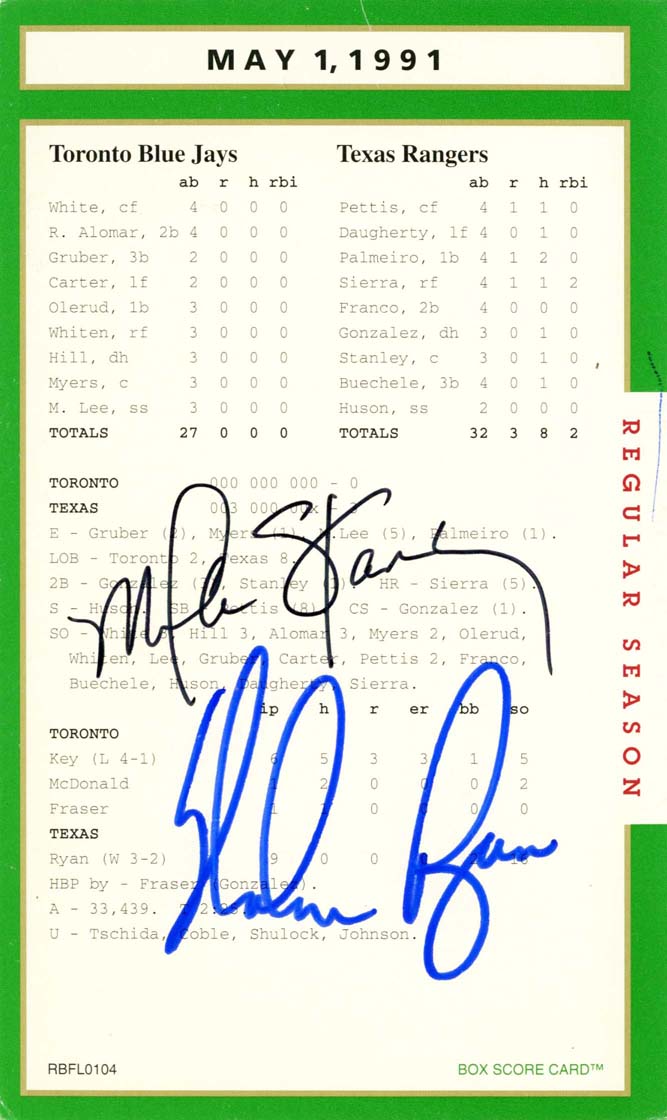 MAY 1, 1991
Toronto Blue Jays
ab r h rbi
White, cf 4 0 0 0
R. Alomar, 2b 4 0 0 0
Gruber, 3b 2 0 0 0
Carter, lf 2 0 0 0
Olerud, 1b 3 0 0 0
Whiten, rf 3 0 0 0
Hill, dh 3 0 0 0
Myers, c 3 0 0 0
M. Lee, ss 3 0 0 0
TOTALS 27 0 0 0
Texas Rangers
ab r h rbi
Pettis, cf 4 1 1 0
Daugherty, lf 4 0 1 0
Palmeiro, 1b 4 1 2 0
Sierra, rf 4 1 1 2
Franco, 2b 4 0 0 0
Gonzalez, dh 3 0 1 0
Stanley, c 3 0 1 0
Buechele, 3b 4 0 1 0
Huson, ss 2 0 0 0
TOTALS 32 3 8 2
REGULAR SEASON
TORONTO 000 000 000 - 0
TEXAS 003 000 00x - 3
E - Gruber (2), Myers (1), M.Lee (5), Palmeiro (1).
LOB - Toronto 2, Texas 8.
2B - Gonzalez, Stanley HR - Sierra (5).
S - Huson. SB - Pettis (8) CS - Gonzalez (1).
SO - White 3, Hill 3, Alomar 3, Myers 2, Olerud,
Whiten, Lee, Gruber, Carter, Pettis 2, Franco,
Buechele, Huson, Daugherty, Sierra.
Mike Stanley
ip h r er bb so
TORONTO
Key (L 4-1) 6 5 3 3 1 5
McDonald 1 2 0 0 0 2
Fraser 1 1 0 0 0 0
TEXAS
Ryan (W 3-2) 9 0 0 0 2 16
HBP by - Fraser (Gonzalez).
A - 33,439. T
U - Tschida, Coble, Shulock, Johnson.
Nolan Ryan
RBFL0104
BOX SCORE CARD™